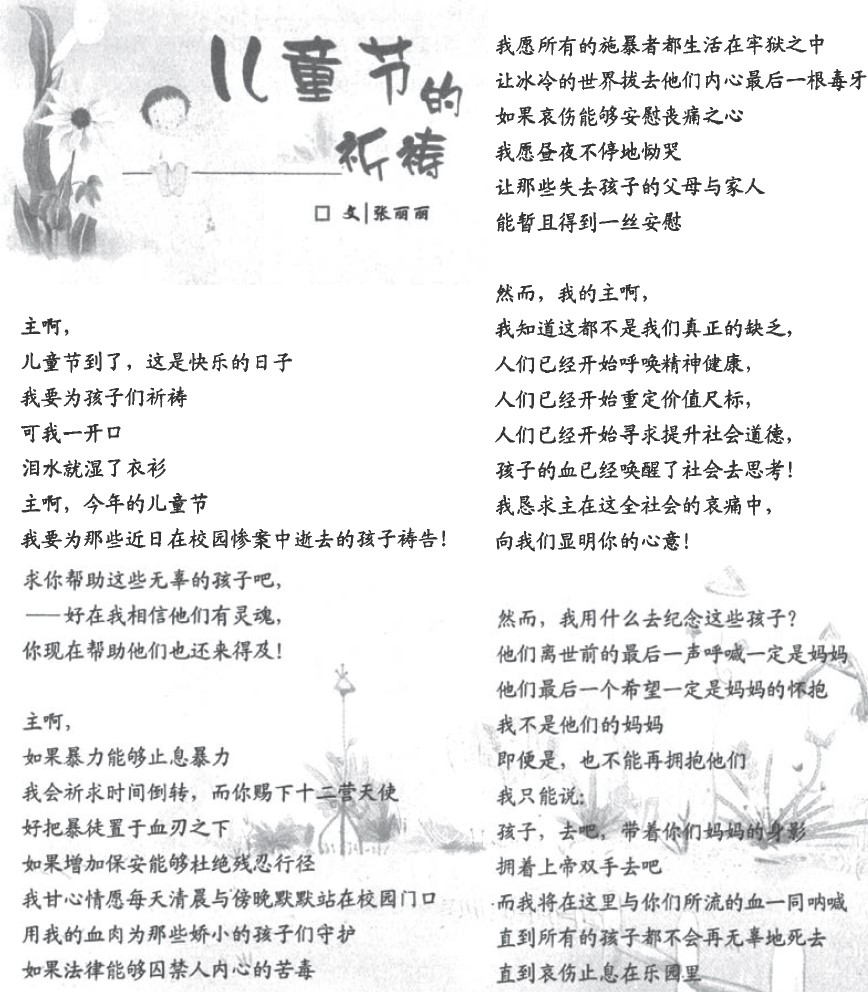 儿童节的
祈祷
□ 文|张丽丽
主啊，
儿童节到了，这是快乐的日子
我要为孩子们祈祷
可我一开口
泪水就湿了衣衫
主啊，今年的儿童节
我要为那些近日在校园惨案中逝去的孩子祷告！
求你帮助这些无辜的孩子吧，
——好在我相信他们有灵魂，
你现在帮助他们也还来得及！
主啊，
如果暴力能够止息暴力
我会祈求时间倒转，而你赐下十二营天使
好把暴徒置于血刃之下
如果增加保安能够杜绝残忍行径
我甘心情愿每天清晨与傍晚默默站在校园门口
用我的血肉为那些娇小的孩子们守护
如果法律能够囚禁人内心的苦毒
我愿所有的施暴者都生活在牢狱之中
让冰冷的世界拔去他们内心最后一根毒牙
如果哀伤能够安慰丧痛之心
我愿昼夜不停地恸哭
让那些失去孩子的父母与家人
能暂且得到一丝安慰
然而，我的主啊，
我知道这都不是我们真正的缺乏，
人们已经开始呼唤精神健康，
人们已经开始重定价值尺标，
人们已经开始寻求提升社会道德，
孩子的血已经唤醒了社会去思考！
我恳求主在这全社会的哀痛中，
向我们显明你的心意！
然而，我用什么去纪念这些孩子？
他们离世前的最后一声呼喊一定是妈妈
他们最后一个希望一定是妈妈的怀抱
我不是他们的妈妈
即便是，也不能再拥抱他们
我只能说：
孩子，去吧，带着你们妈妈的身影
拥着上帝双手去吧
而我将在这里与你们所流的血一同呐喊
直到所有的孩子都不会再无辜地死去
直到哀伤止息在乐园里